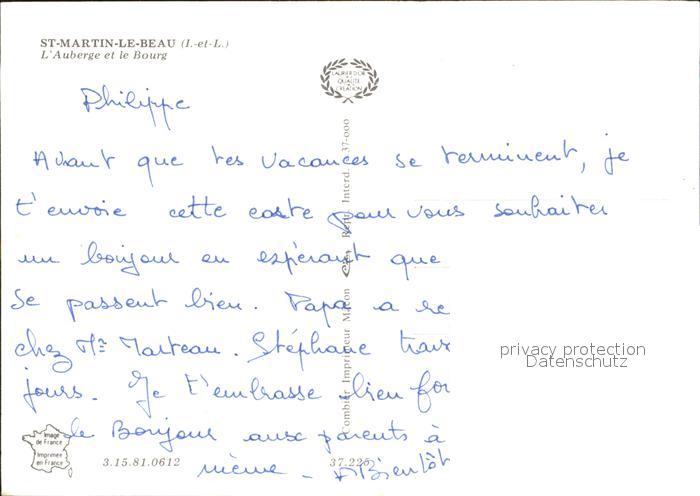 ST-MARTIN-LE-BEAU (I.-et-L.)
L'Auberge et le Bourg
LAURIER D'OR
DE LA
QUALITÉ
CRÉATION
Philippe
Avant que tes vacances se terminent, je
t'envoie cette carte pour vous souhaiter
un bonjour en espérant que
se passent bien. Papa a re
chez Mr Marteau. Stéphane
jours. Je t'embrasse bien for
le Bonjour aux parents à
même - A Bientôt
Combier Imprimeur Macon Repr. Interd. 37-000
privacy protection
Datenschutz
Image
de France
Imprimée
en France
3.15.81.0612
37.225